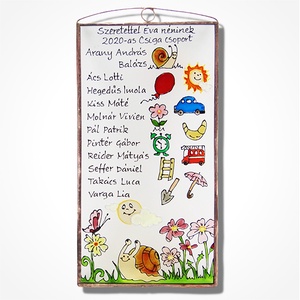 Szeretettel Éva néninek
2020-as Csiga Csoport
Arany András
Balázs
Ács Lotti
Hegedűs Imola
Kiss Máté
Molnár Vivien
Pál Patrik
Pintér Gábor
Reider Mátyás
Seffer Dániel
Takács Luca
Varga Lia